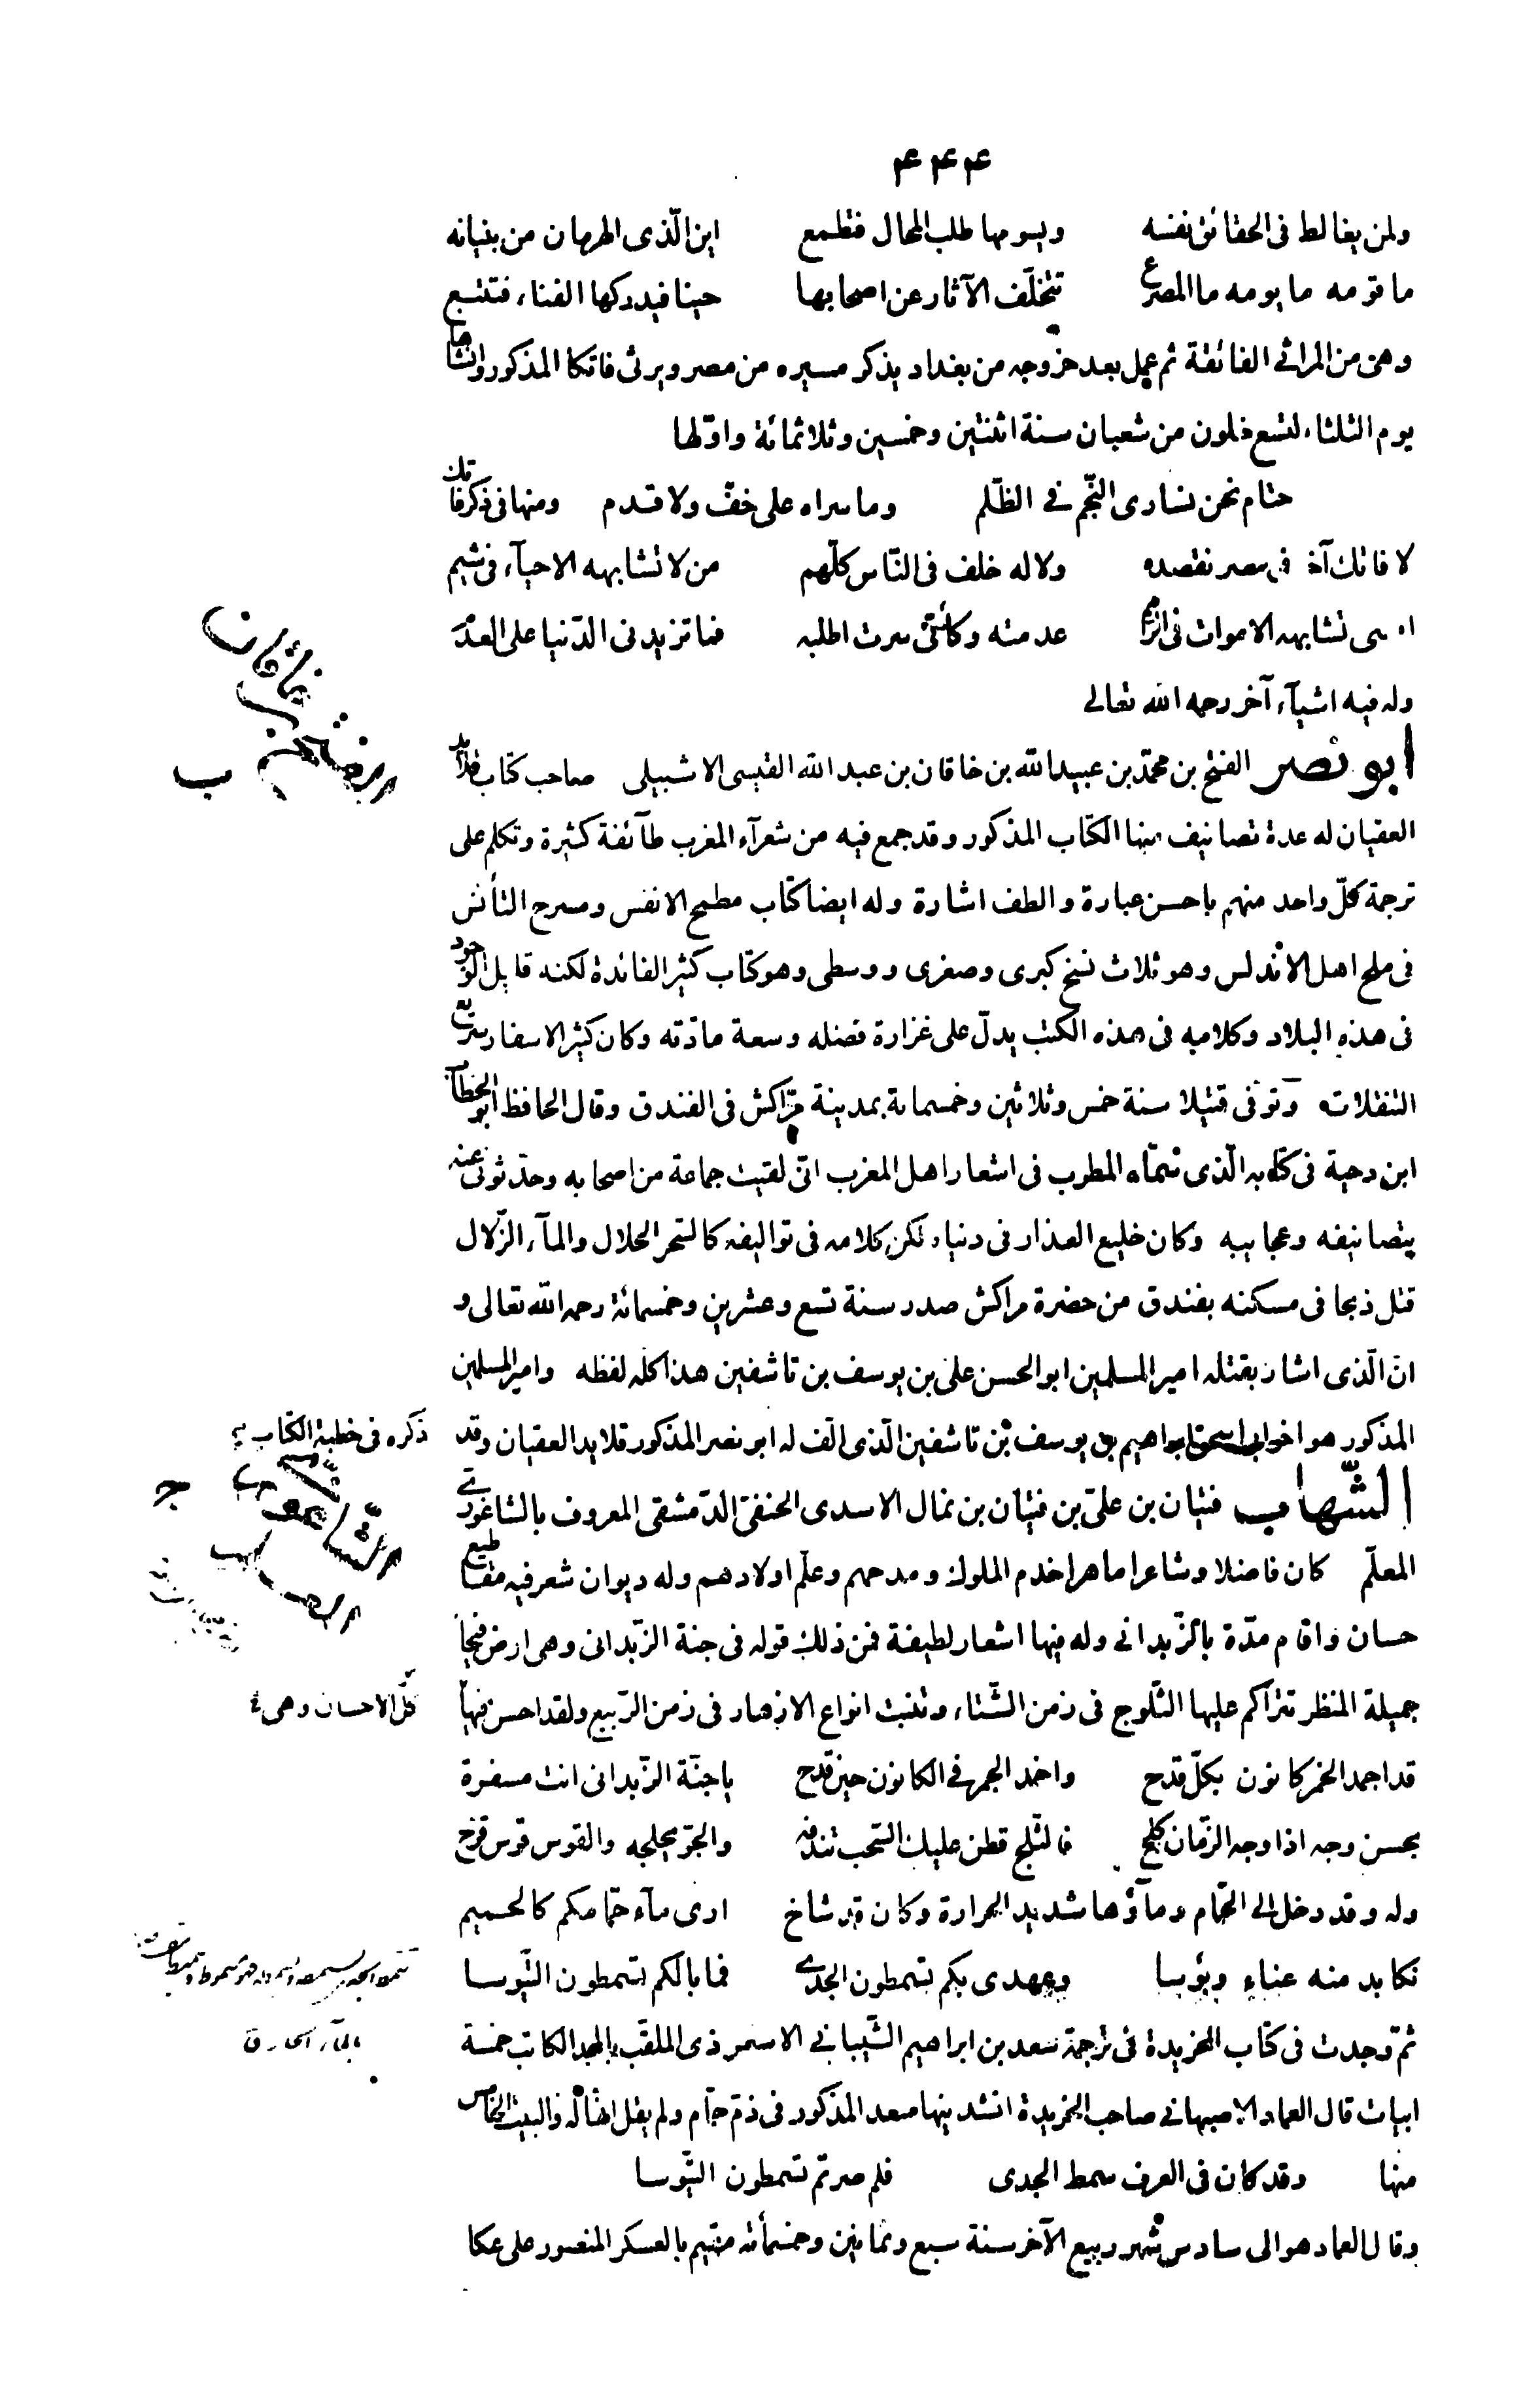 ۴۴۴
ولمن يغالط فى الحقائق نفسه ويسومها طلب المحال فتطمع اين الّذى الهرمان من بنيانه
ما قومه ما يومه ما المصرع تتخلّف الآثار عن اصحابها حينا فيدركها الفناء فتتبع
وهى من المراثى الفائقة ثم عمل بعد خروجه من بغداد يذكر مسيره من مصر ويرثى فاتكا المذكور وانشاها
يوم الثلثاء لتسع خلون من شعبان سنة اثنتين وخمسين وثلاثمائة واوّلها
حتام نحن نسارى النّجم فى الظّلم وما سراه على خفّ ولا قدم ومنها فى ذكر فاتك
لا فاتك آخر فى مصر نقصده ولا له خلف فى النّاس كلّهم من لا تشابهه الاحيآء فى شيم
امسى تشابهه الاموات فى الرّمم عدمته وكأنّنى سرت اطلبه فما تزيدنى الدّنيا على العدم
وله فيه اشيآء آخر رحمه الله تعالى
ابو نصر الفتح بن محمّد بن عبيد الله بن خاقان بن عبد الله القيسى الاشبيلى صاحب كتاب قلائد
العقيان له عدة تصانيف منها الكتاب المذكور وقد جمع فيه من شعرآء المغرب طآئفة كثيرة وتكلم على
ترجمة كلّ واحد منهم باحسن عبارة والطف اشارة وله ايضا كتاب مطمح الانفس ومسرح التأنس
فى ملح اهل الاندلس وهو ثلاث نسخ كبرى وصغرى ووسطى وهو كتاب كثير الفائدة لكنه قليل الوجود
فى هذه البلاد وكلامه فى هذه الكتب يدلّ على غزارة فضله وسعة مادّته وكان كثير الاسفار سريع
التنقلات وتوفى قتيلا سنة خمس وثلاثين وخمسماية بمدينة مرّاكش فى الفندق وقال الحافظ ابو الخطاب
ابن دحية فى كتابه الّذى سمّاه المطرب فى اشعار اهل المغرب انّى لقيت جماعة من اصحابه وحدّثونى عنه
بتصانيفه وعجايبه وكان خليع العذار فى دنياه لكن كلامه فى تواليفه كالسّحر الحلال والمآء الزّلال
قتل ذبحا فى مسكنه بفندق من حضرة مراكش صدر سنة تسع وعشرين وخمسمائة رحمه الله تعالى و
انّ الّذى اشار بقتله امير المسلمين ابو الحسن على بن يوسف بن تاشفين هذا كله لفظه وامير المسلمين
المذكور هو اخو ابى اسحق ابراهيم بن يوسف بن تاشفين الّذى الّف له ابو نصر المذكور قلايد العقيان وقد
ذكره فى خطبة الكتاب
الشّهاب فتيان بن علىّ بن فتيان بن ثمال الاسدى الحنفىّ الدّمشقى المعروف بالشاغورى
الشّاغورى
المعلّم كان فاضلا وشاعرا ماهرا خدم الملوك ومدحهم وعلّم اولادهم وله ديوان شعر فيه مقاطيع
حسان واقام مدّة بالزّبدانى وله فيها اشعار لطيفة فمن ذلك قوله فى جنة الزّبدانى وهى ارض فيحا
جميلة المنظر تتراكم عليها الثّلوج فى زمن الشّتاء وتنبت انواع الازهار فى زمن الرّبيع ولقد احسن فيها
كلّ الاحسان وهى
قد اجمد الخمر كانون بكلّ قدح واخمد الجمر فى الكانون حين قدح يا جنّة الزّبدانى انت مسفرة
بحسن وجه اذا وجه الزّمان كلح فالثّلج قطن عليك السّحب تندفه والجوّ يحلجه والقوس قوس قزح
وله وقد دخل الى الحمّام ومآؤها شديد الحرارة وكان قد شاخ ارى مآء حمّامكم كالحميم
نكابد منه عناء وبؤسا وعهدى بكم تسمطون الجدى فما بالكم تسمطون التّيوسا
ثمّ وجدت فى كتاب الخريدة فى ترجمة سعد بن ابراهيم الشّيبانى الاسعردى الملقّب بالمجد الكاتب خمسة
ابيات قال العماد الاصبهانى صاحب الخريدة انشدنيها سعد المذكور فى ذمّ حمّام ولم يقل انها له والبيت الخامس
منها وقد كان فى العرف سمط الجدى فلم صرتم تسمطون التّيوسا
وقال العماد هو الى سادس شهر ربيع الآخر سنة سبع وثمانين وخمسمأئة مقيم بالعسكر المنصور على عكا